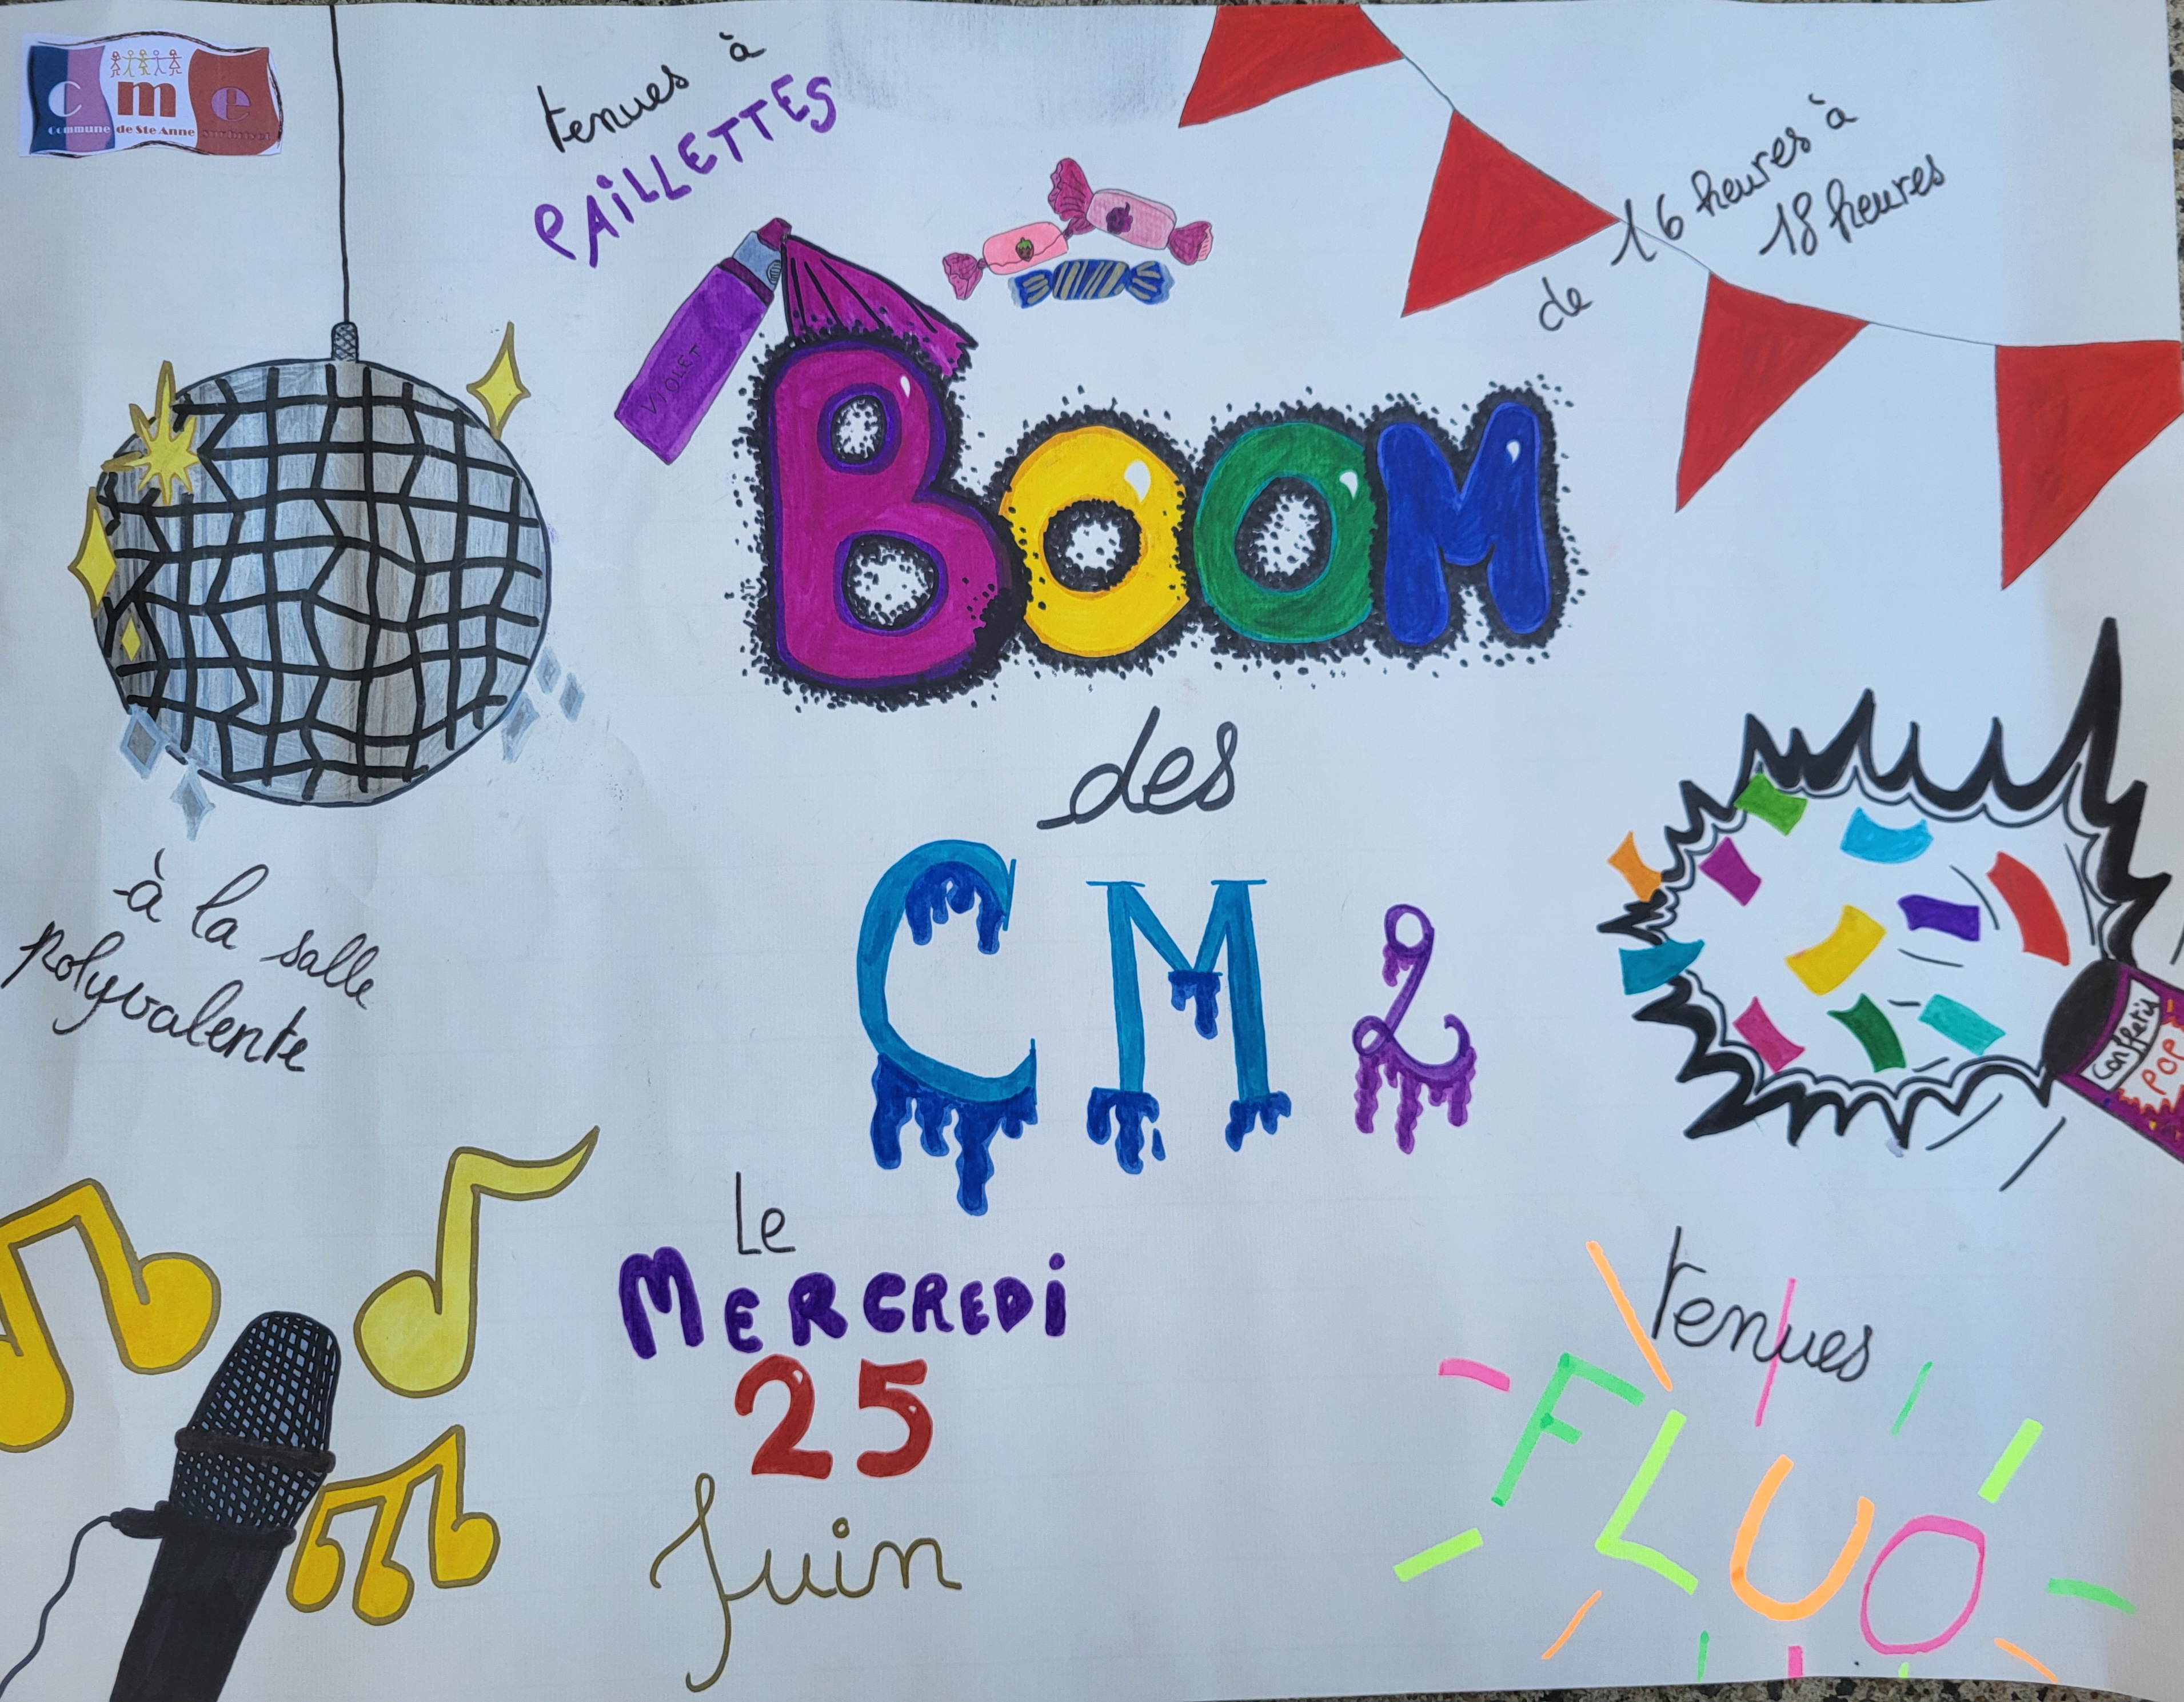 cme
Commune de Ste Anne
tenues à
PAILLETTES
de 16 heures à
18 heures
VIOLET
BOOM
des
CM2
à la salle
polyvalente
Confettis
POP
Le
MERCREDI
25
Juin
tenues
FLUO